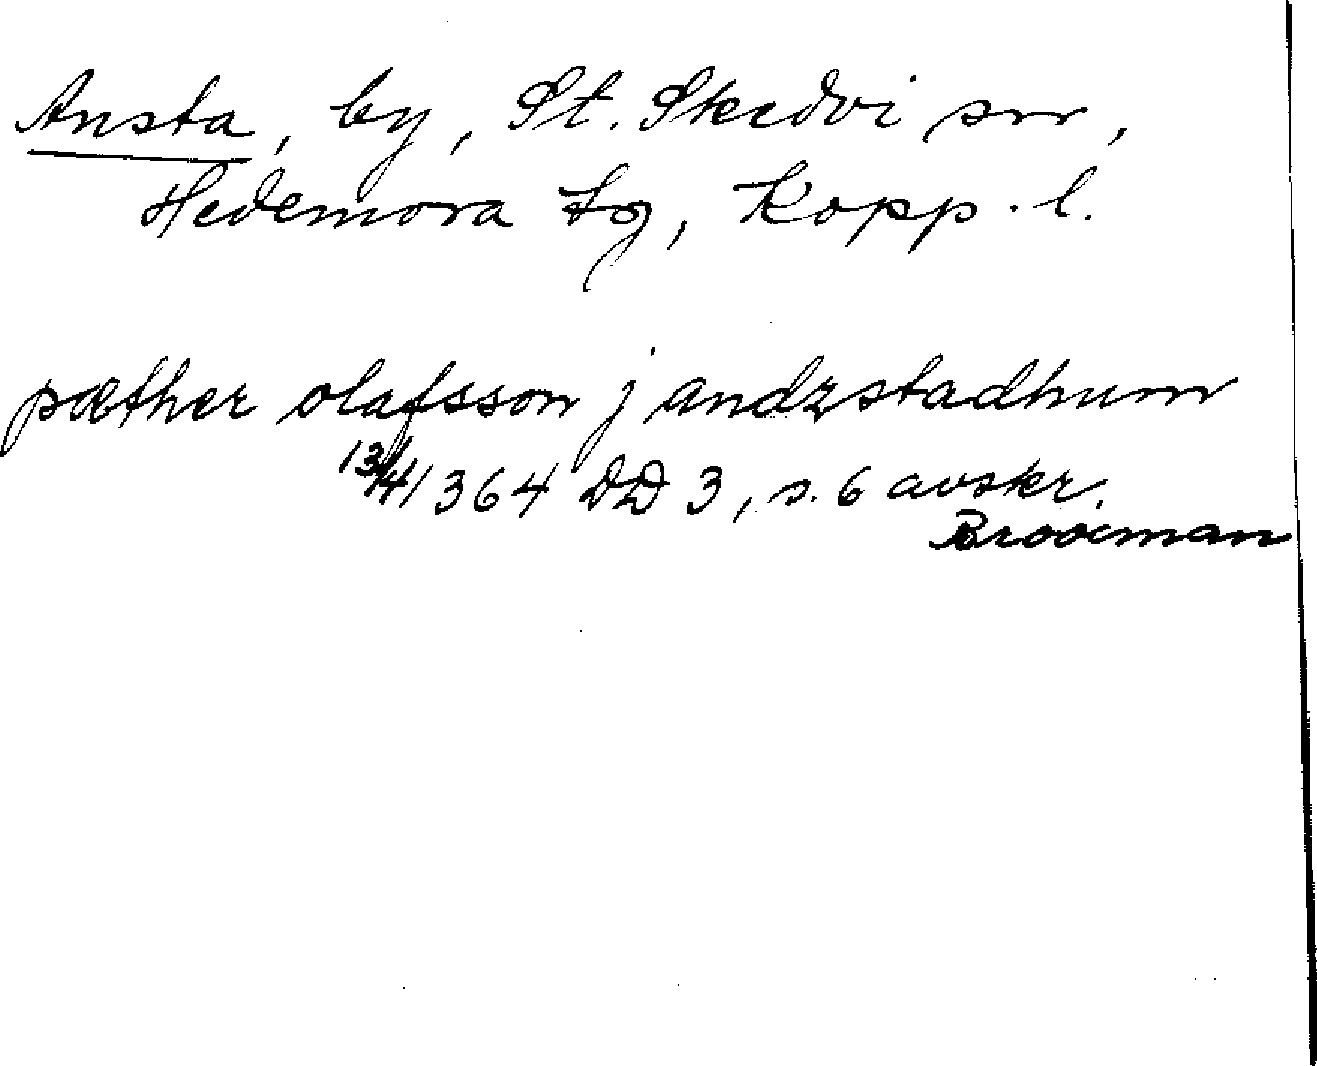 Ansta, by, St. Skedvi sn,
Hedemora tg, Kopp. l.
pæther olafsson j andzstadhum
13/4 1364 DD 3, s. 6 avskr.
Brooiman